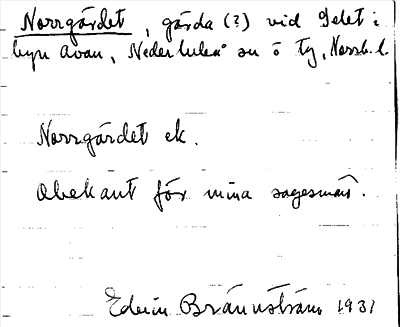 Norrgärdet, gärda (?) vid Selet i
byn Avan, Nederluleå sn o tg, Norrb. l.
Norrgärdet ek.
Obekant för mina sagesmän.
Edvin Brännström 1931